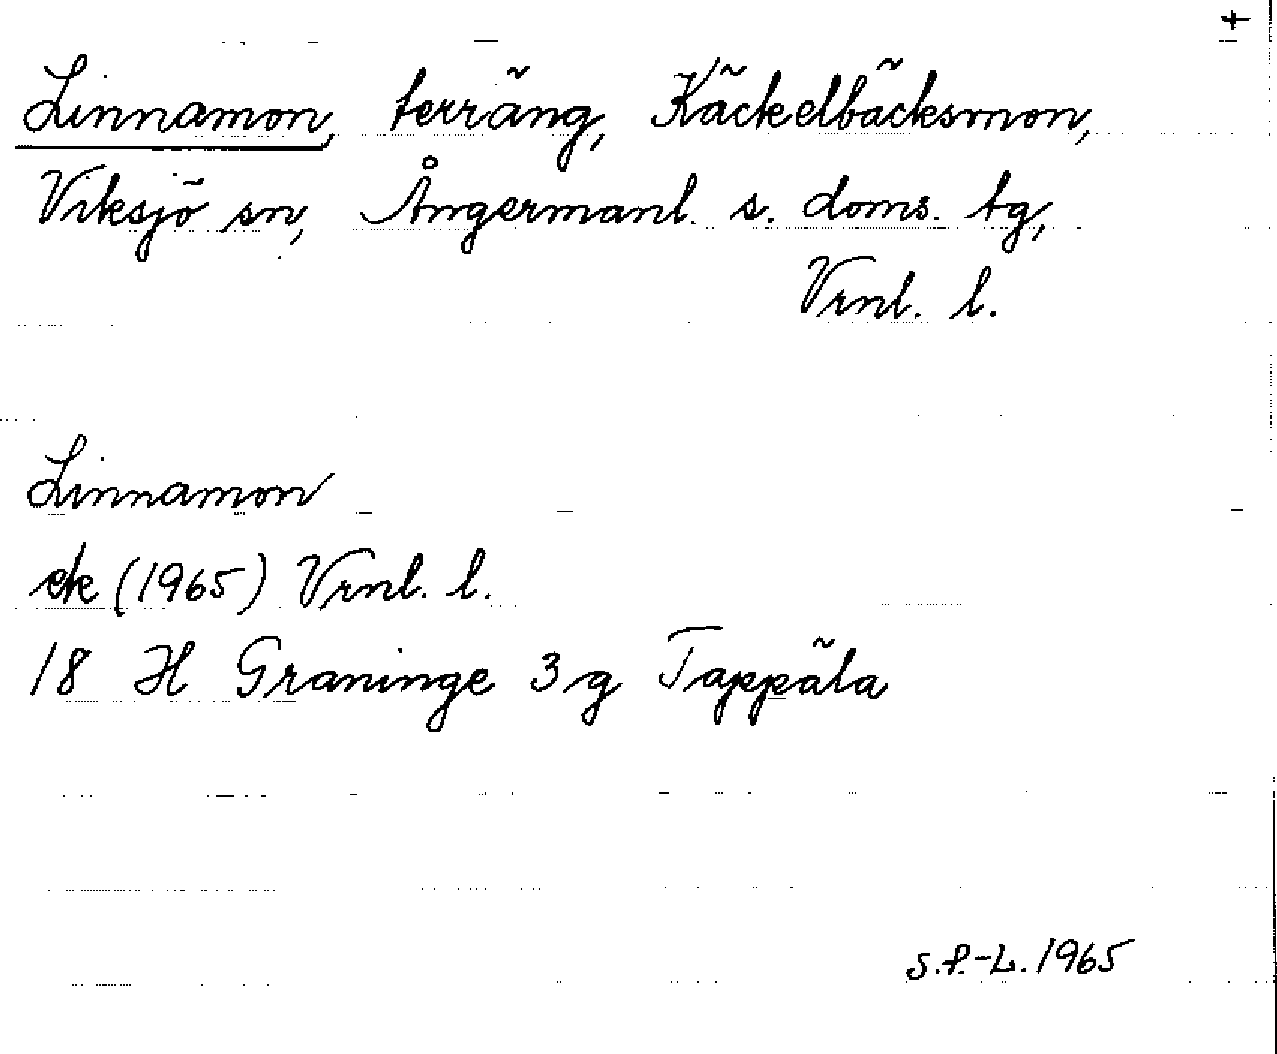 Linnamon, terräng, Käckelbäcksmon,
Viksjö sn, Ångermanl. s. doms. tg,
Vrnl. l.
Linnamon
ek (1965) Vrnl. l.
18 H Graninge 3 g Tappäla
S.P.-L. 1965